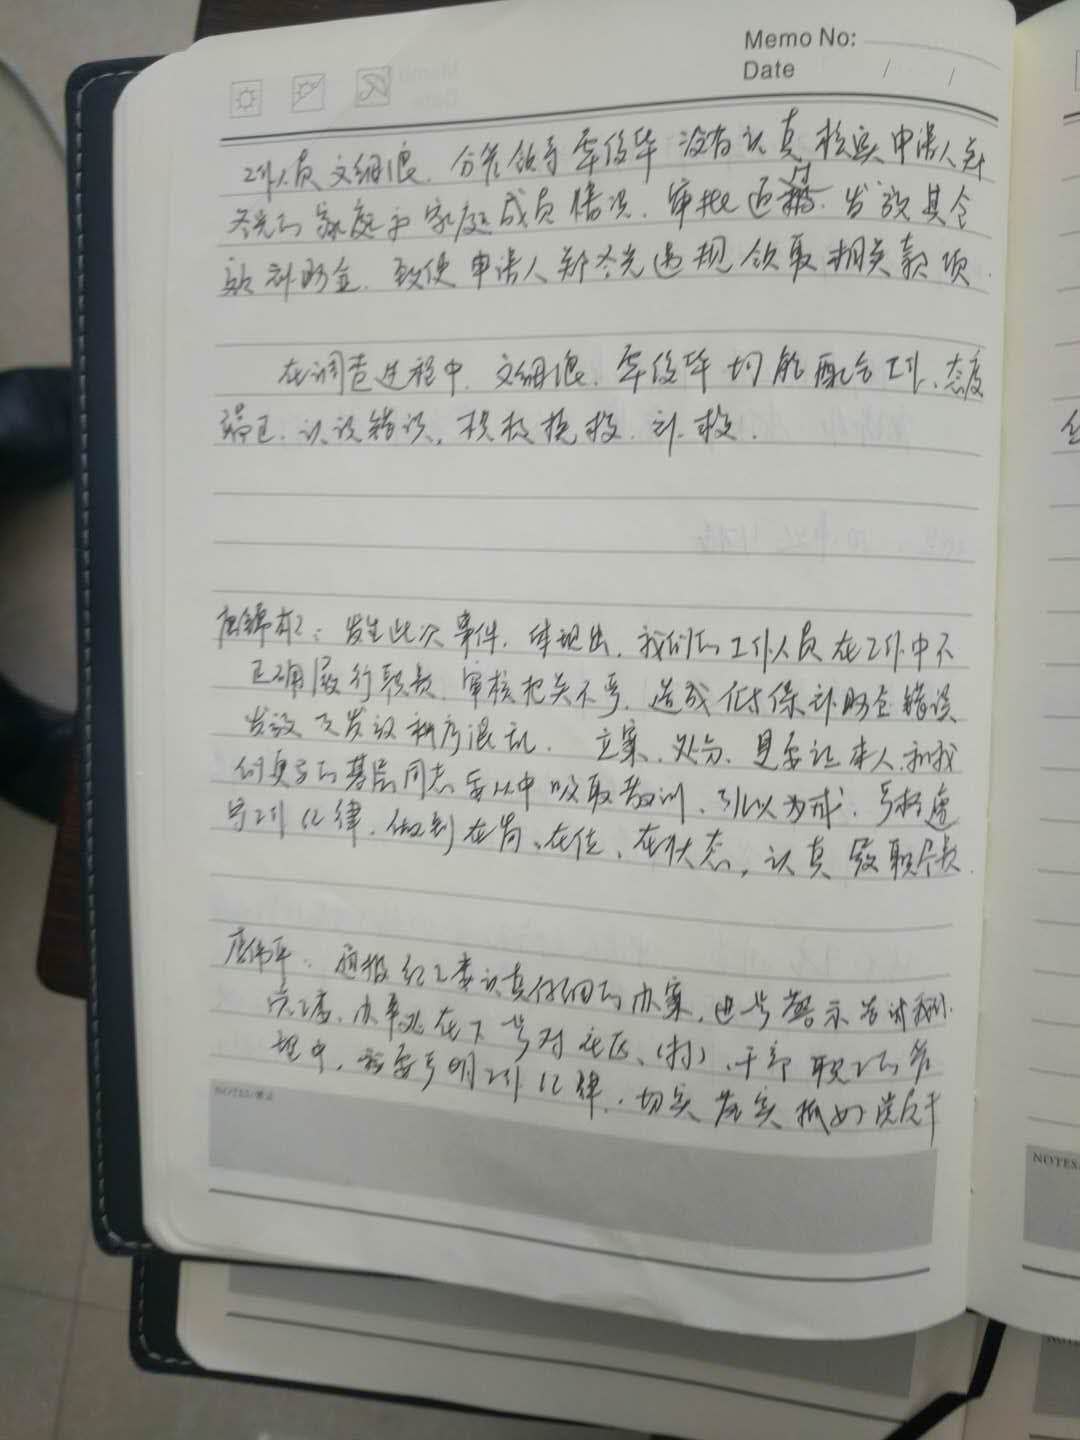 Memo No:
Date / /
工作人员文细浪、分管领导 没有认真核实申请人郑
冬光的家庭和家庭成员情况、审批 发放其全
额补助金、致使申请人郑冬光违规领取相关款项
在调查过程中、文细浪、 均能配合工作、态度
端正、认识错误,积极
发生此次事件、体现出、我们的工作人员在工作中不
正确履行职责、审核把关不严、造成低保补助金错误
发放及发放秩序混乱、立案、处分、是要让本人和我
们更多的基层同志要从中吸取教训、引以为戒、严格遵
守工作纪律、做到在岗、在位、在状态,认真履职尽责
唐伟平:通报纪工委认真仔细的办案,也是警示告诫我们.
党工委、办事处在下 对社区、(村)、干部职工的管
理中,需要严明工作纪律、切实落实抓好党风
NOTES/要点
NOTES